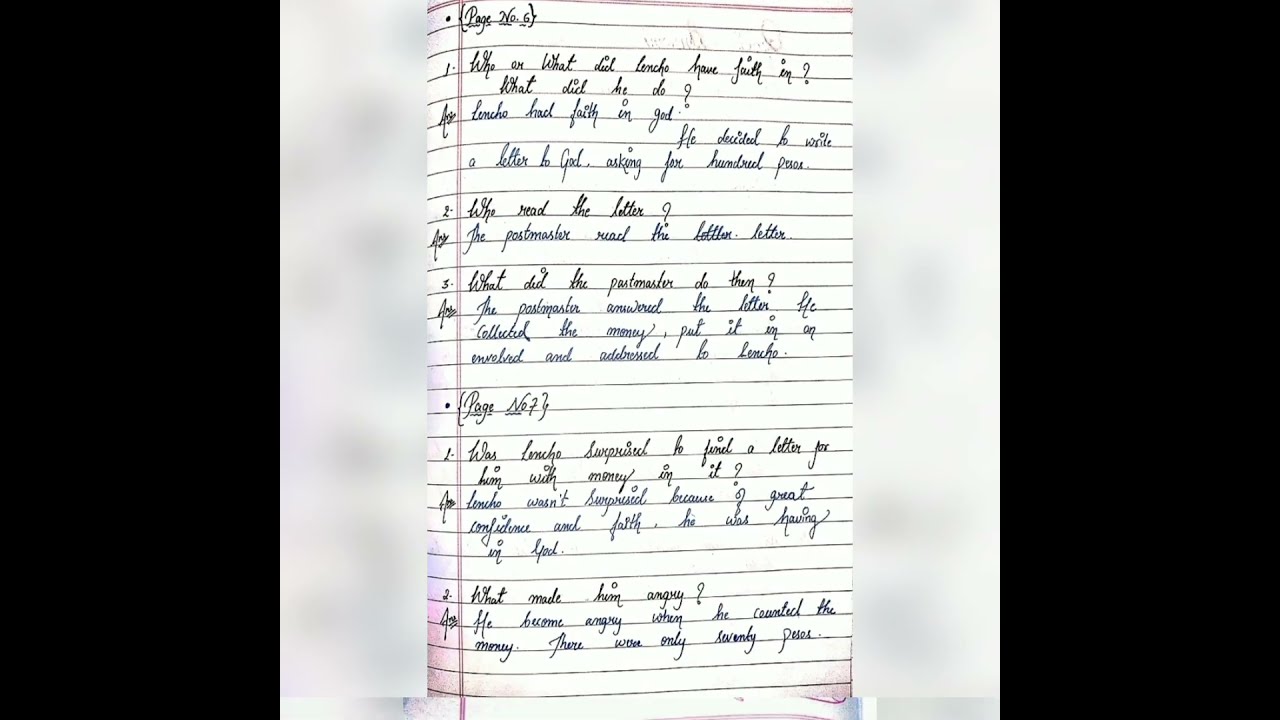 • {Page No. 6}
1. Who or What did Lencho have faith in ?
What did he do ?
Ans Lencho had faith in god.
He decided to write
a letter to God, asking for hundred pesos.
2. Who read the letter ?
Ans The postmaster read the letter. letter.
3. What did the postmaster do then ?
Ans The postmaster answered the letter He
collected the money, put it in an
envolved and addressed to Lencho.
• {Page No 7}
1. Was Lencho Surprised to find a letter for
him with money in it ?
Ans Lencho wasn't Surprised because of great
confidence and faith, he was having
in God.
2. What made him angry ?
Ans He become angry when he counted the
money. There were only seventy pesos.